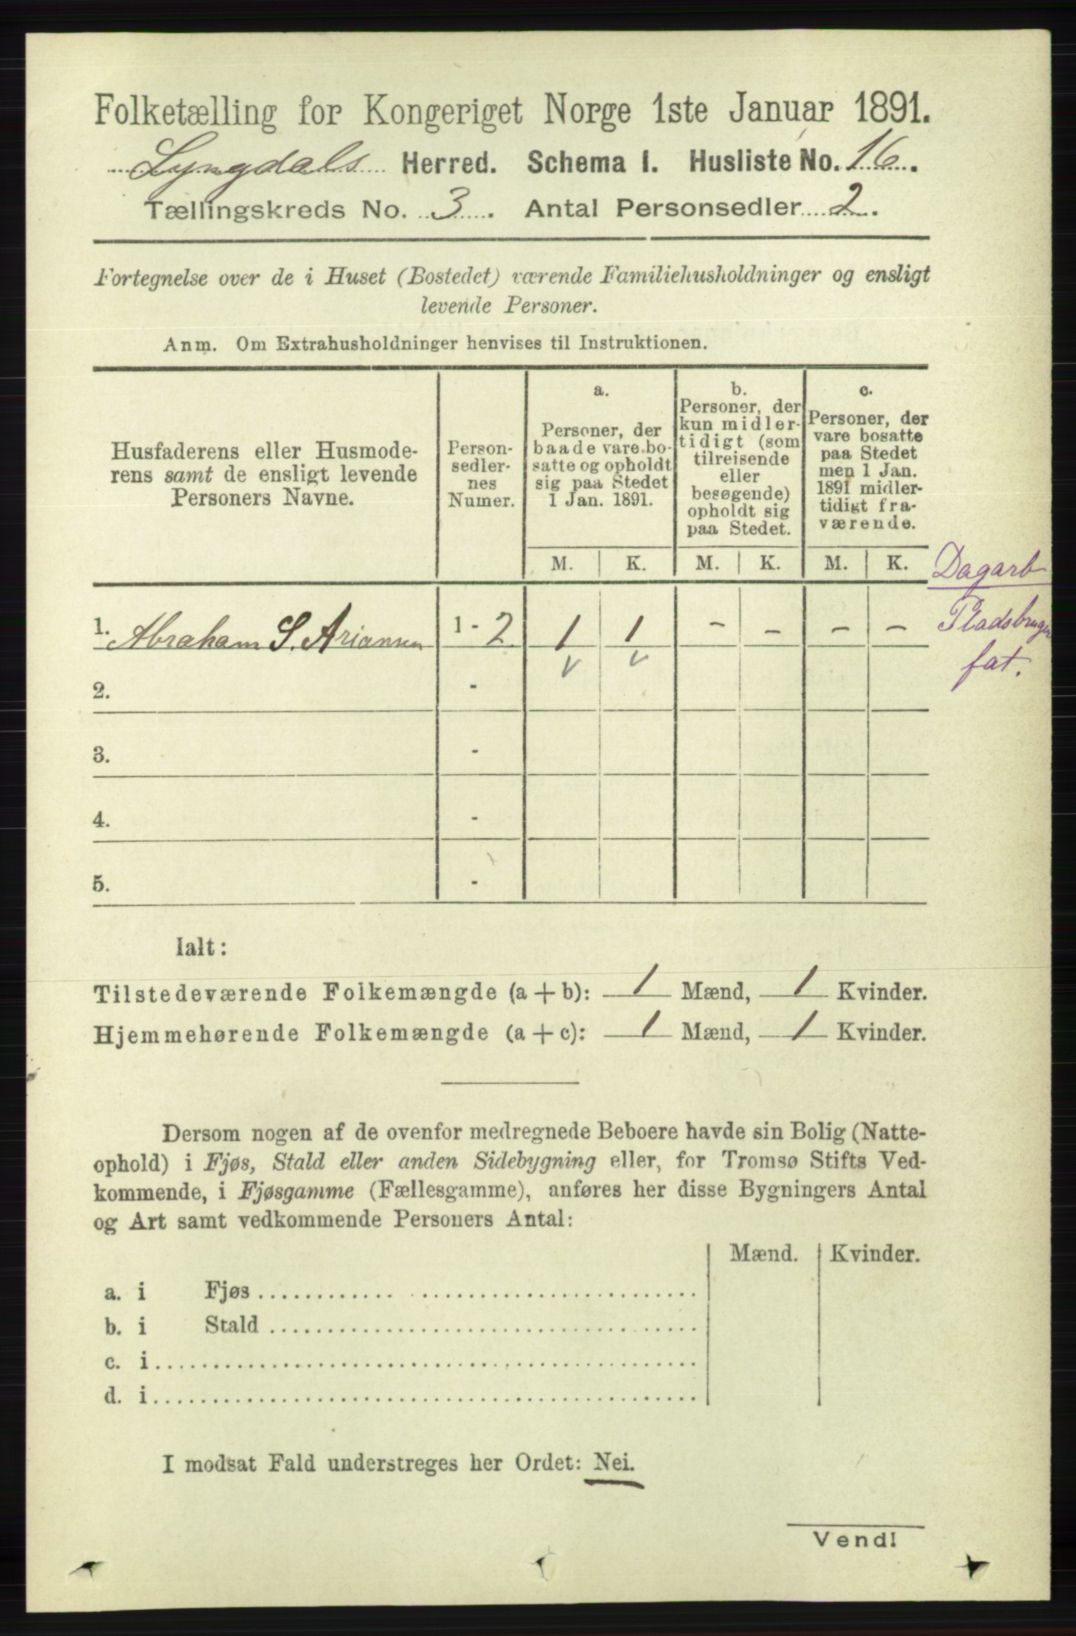 Folketælling for Kongeriget Norge 1ste Januar 1891.
Lyngdals Herred. Schema I. Husliste No. 16.
Tællingskreds No. 3. Antal Personsedler 2.
Fortegnelse over de i Huset (Bostedet) værende Familiehusholdninger og ensligt
levende Personer.
Anm. Om Extrahusholdninger henvises til Instruktionen.
Husfaderens eller Husmode-
rens samt de ensligt levende
Personers Navne.
Person-
sedler-
nes
Numer.
a.
Personer, der
baade vare bo-
satte og opholdt
sig paa Stedet
1 Jan. 1891.
b.
Personer, der
kun midler-
tidigt (som
tilreisende
eller
besøgende)
opholdt sig
paa Stedet.
c.
Personer, der
vare bosatte
paa Stedet
men 1 Jan.
1891 midler-
tidigt fra-
værende.
M. K. M. K. M. K.
Dagarb
1. Abraham S. Ariansen 1 - 2 1 1 - - - - Pladsbruger
fat.
2. -
3. -
4. -
5. -
Ialt:
Tilstedeværende Folkemængde (a + b): 1 Mænd, 1 Kvinder.
Hjemmehørende Folkemængde (a + c): 1 Mænd, 1 Kvinder.
Dersom nogen af de ovenfor medregnede Beboere havde sin Bolig (Natte-
ophold) i Fjøs, Stald eller anden Sidebygning eller, for Tromsø Stifts Ved-
kommende, i Fjøsgamme (Fællesgamme), anføres her disse Bygningers Antal
og Art samt vedkommende Personers Antal:
Mænd. Kvinder.
a. i Fjøs
b. i Stald
c. i
d. i
I modsat Fald understreges her Ordet: Nei.
Vend!